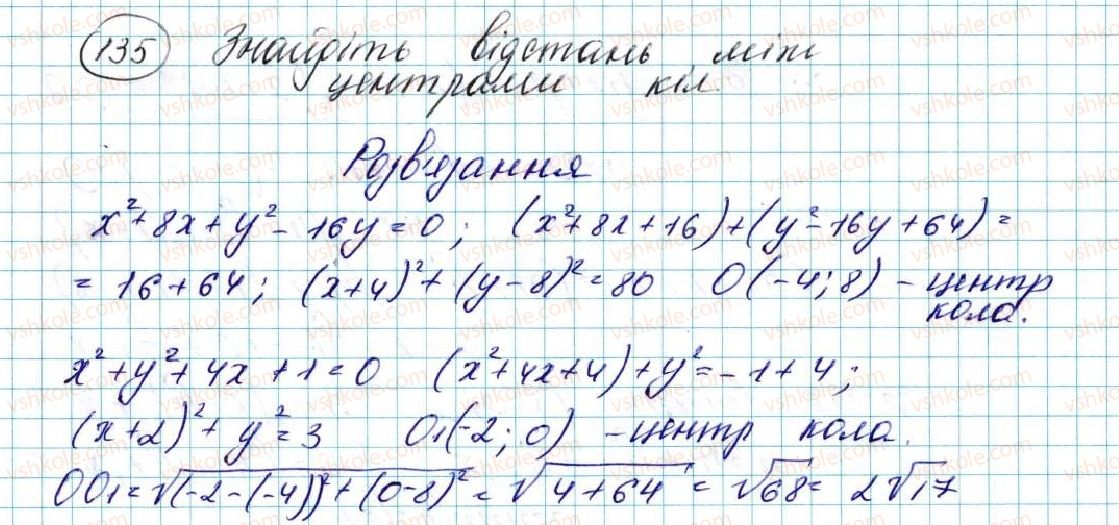 135 Знайдіть відстань між
центрами кіл
Розв'язання
x²+8x+y²-16y=0; (x²+8x+16)+(y²-16y+64)=
=16+64; (x+4)²+(y-8)²=80 O(-4;8) - центр
кола.
x²+y²+4x+1=0 (x²+4x+4)+y²=-1+4;
(x+2)²+y²=3 O₁(-2;0) - центр кола.
OO₁=√(-2-(-4))²+(0-8)²=√4+64=√68=2√17